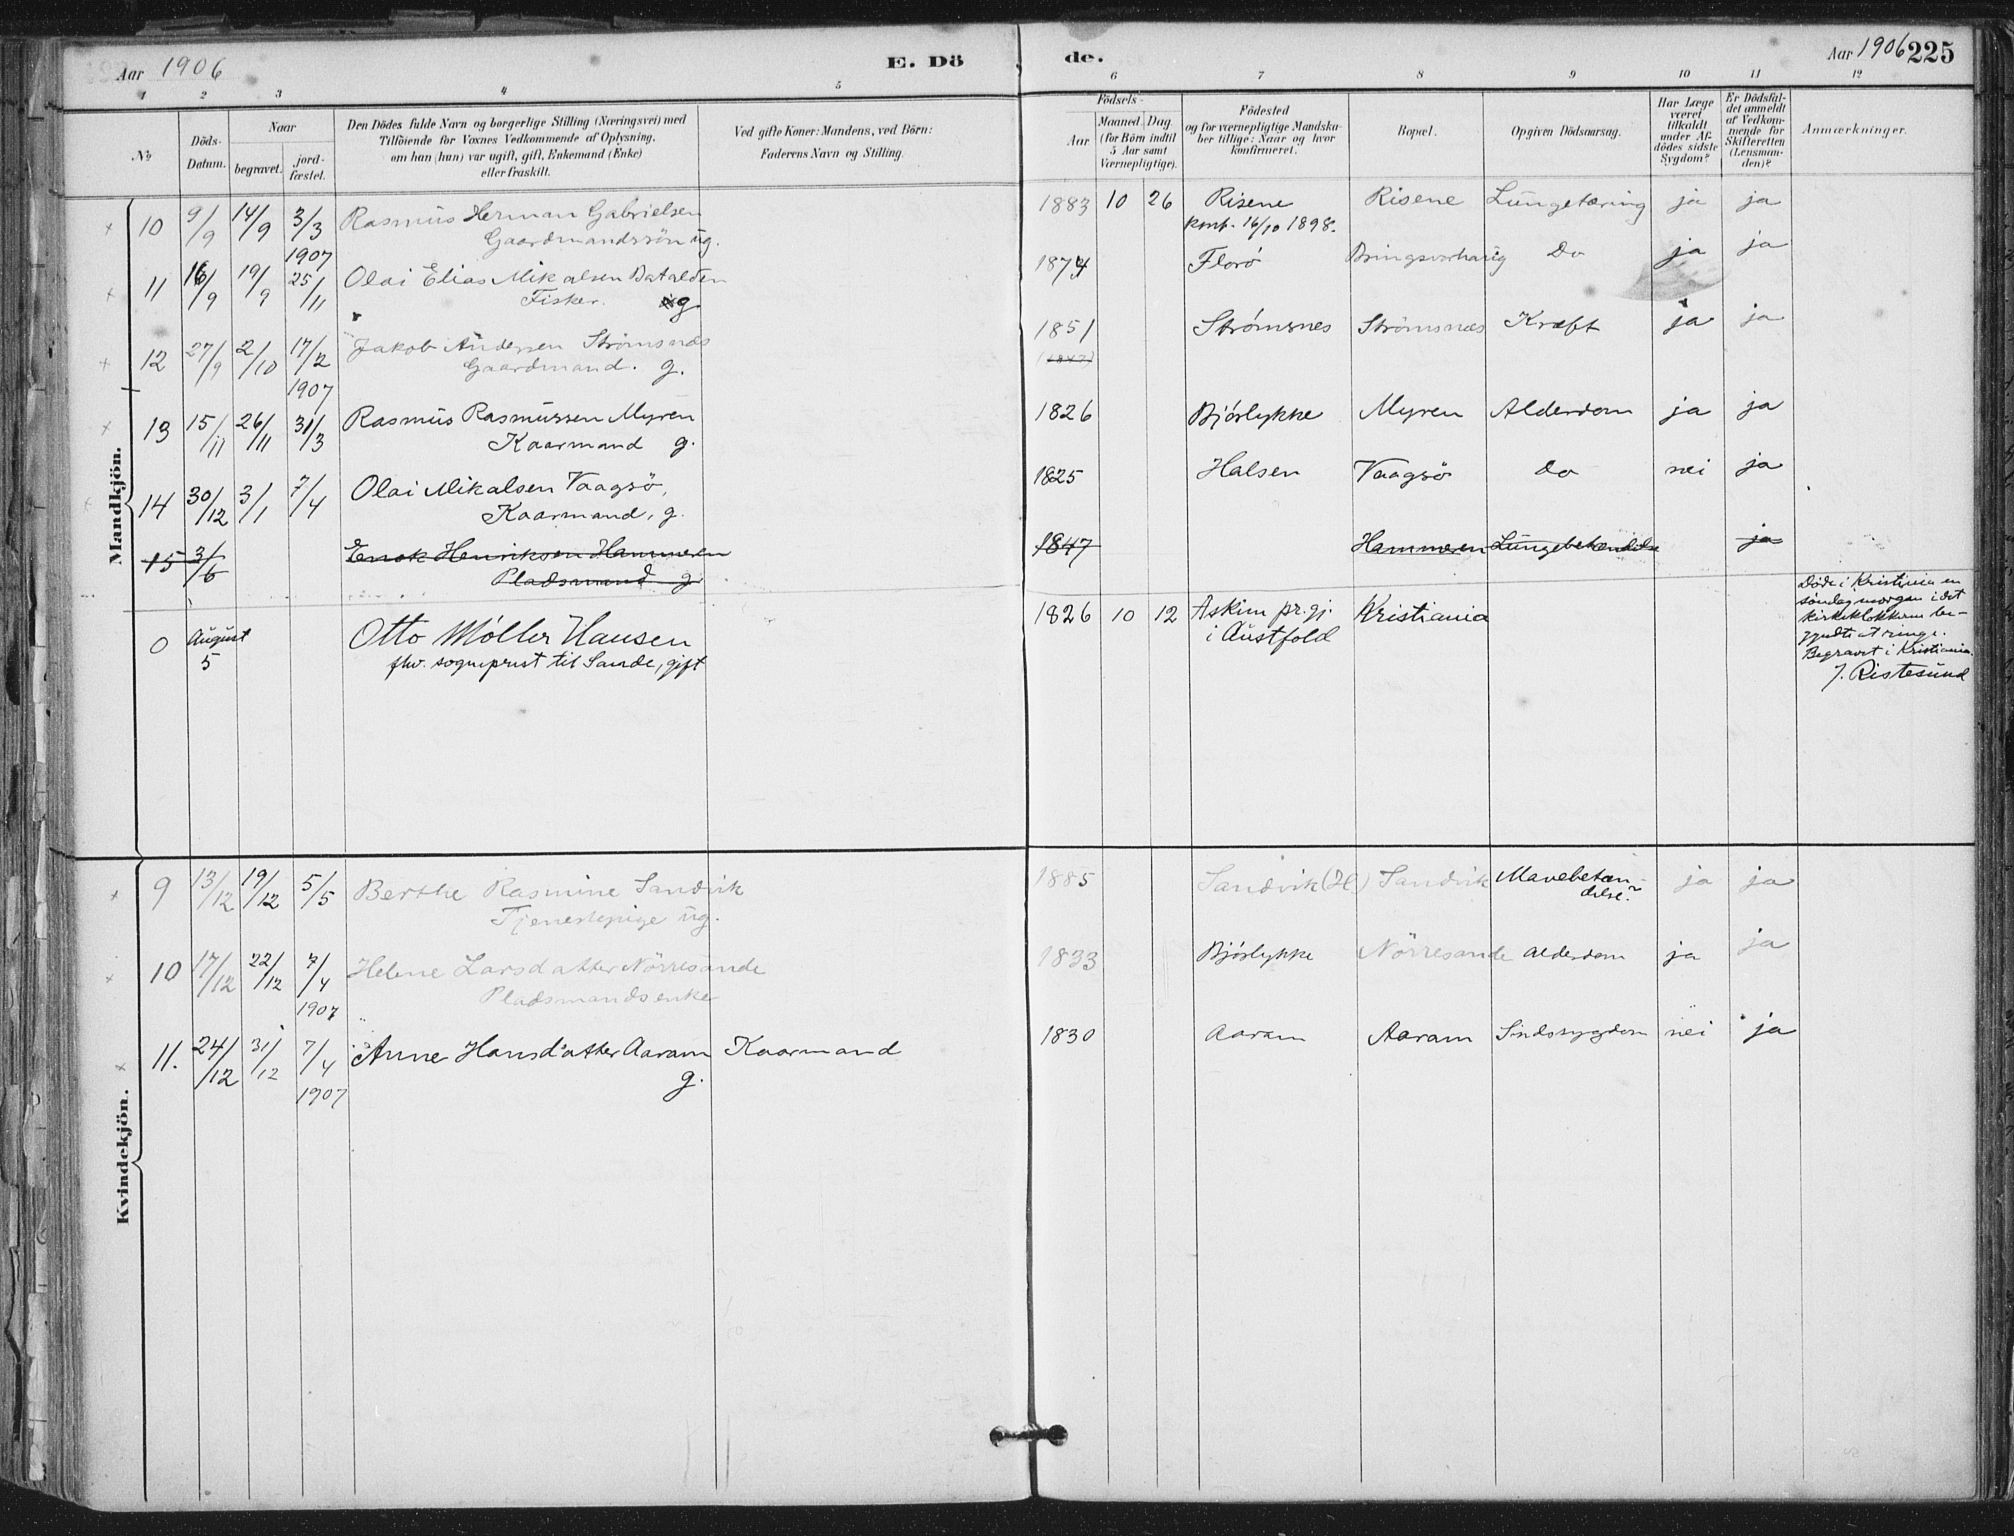 Aar 1906 E. Dö de. Aar 1906 225
1 2 3 4 5 6 7 8 9 10 11 12
No
Döds-Datum.
Naar
begravet.
jord-fæstet.
Den Dödes fulde Navn og borgerlige Stilling (Næringsvei) med
Tilföiende for Voxnes Vedkommende af Oplysning,
om han (hun) var ugift, gift, Enkemand (Enke)
eller fraskilt.
Ved gifte Koner: Mandens, ved Börn:
Faderens Navn og Stilling.
Födsels-
Aar.
Maaned. Dag.
(for Börn indtil
5 Aar samt
Værnepligtige).
Födested
og for værnepligtige Mandska-
ber tillige: Naar og hvor
konfirmeret.
Bopæl.
Opgiven Dödsaarsag.
Har Læge
været
tilkaldt
under Af-
dödes sidste
Sygdom?
Er Dödsfal-
det anmeldt
af Vedkom-
mende for
Skifteretten
(Lensman-
den)?
Anmærkninger.
Mandkjön.
10 9/9 14/9 3/3 1907 Rasmus Herman Gabrielsen 1883 10 26 Risene Risene Lungetæring ja ja
Gaardmandssön ug. konf. 16/10 1898.
11 16/9 19/9 25/11 Olai Elias Mikalsen Batalden 1874 Florö Do ja ja
Fisker. g
12 27/9 2/10 17/2 1907 Jakob Andersen Strömsnæs 1851 Strömsnes Strömsnæs Kræft ja ja
Gaardmand. g. (1847)
13 15/11 26/11 31/3 Rasmus Rasmussen Myren 1826 Bjórlykke Myren Alderdom ja ja
Kaarmand g.
14 30/12 3/1 7/4 Olai Mikalsen Vaagsö, 1825 Halsen Vaagsö do nei ja
Kaarmand, g.
15 3/6 Enok Henriksen Hammeren 1847 Hammeren Lungebetændelse ja
Pladsmand g
0 August 5 Otto Møller Hansen 1826 10 12 Askim pr.gj. Kristiania
fhv. sogneprest til Sande, gift i Austfold
Døde i Kristiania en
søndag morgen i det
kirkeklokkerne be-
gyndte at ringe.
Begravet i Kristiania.
J. Ristesund
Kvindekjön.
9 13/12 19/12 5/5 Berthe Rasmine Sandvik 1885 Sandvik (H) Sandvik Mavebetæn-
delse? ja ja
Tjenestepige ug.
10 17/12 22/12 7/4 1907 Helene Larsdatter Nörresande 1833 Bjórlykke Nörresande Alderdom ja ja
Pladsmandsenke
11. 24/12 31/12 7/4 1907 Anne Hansdatter Aaram Kaarmand 1830 Aaram Aaram Sindssygdom nei ja
g.